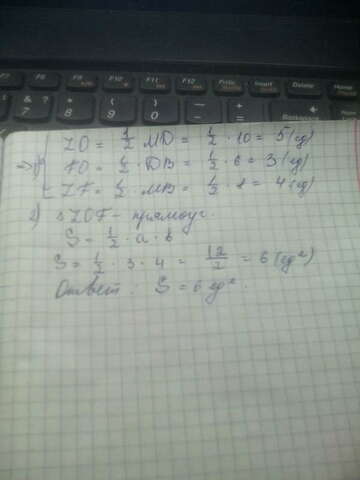 F7 F8 F9 F10 F11 F12 PrtSc Insert Delete Home
& 7 ? * 8 ( 9 ) 0 - + = Backspace
ZO = 1/2 MD = 1/2 · 10 = 5 (ед)
=> FO = 1/2 · DB = 1/2 · 6 = 3 (ед)
ZF = 1/2 · MB = 1/2 · 8 = 4 (ед)
2) △ZOF - прямоуг.
S = 1/2 · a · b
S = 1/2 · 3 · 4 = 12/2 = 6 (ед²)
Ответ: S = 6 ед².